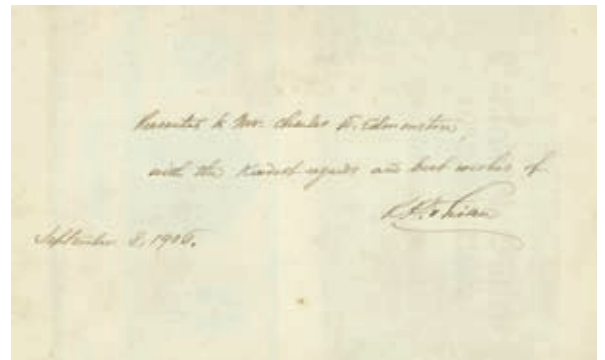 Presented to Mr. Charles E. Edmonston,
with the kindest regards and best wishes of
September 8, 1906.